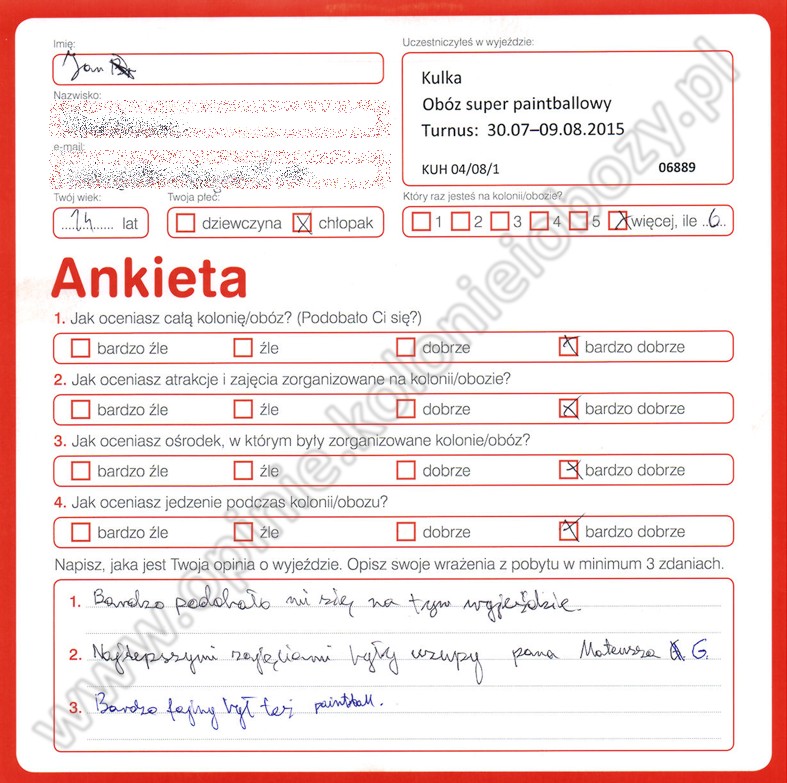 Imię:
Jan
Uczestniczyłeś w wyjeździe:
Kulka
Obóz super paintballowy
Turnus: 30.07–09.08.2015
KUH 04/08/1 06889
Nazwisko:
e-mail:
Twój wiek:
14 lat
Twoja płeć:
dziewczyna X chłopak
Który raz jesteś na kolonii/obozie?
1 2 3 4 5 X więcej, ile 6
Ankieta
1. Jak oceniasz całą kolonię/obóz? (Podobało Ci się?)
bardzo źle źle dobrze X bardzo dobrze
2. Jak oceniasz atrakcje i zajęcia zorganizowane na kolonii/obozie?
bardzo źle źle dobrze X bardzo dobrze
3. Jak oceniasz ośrodek, w którym były zorganizowane kolonie/obóz?
bardzo źle źle dobrze X bardzo dobrze
4. Jak oceniasz jedzenie podczas kolonii/obozu?
bardzo źle źle dobrze X bardzo dobrze
Napisz, jaka jest Twoja opinia o wyjeździe. Opisz swoje wrażenia z pobytu w minimum 3 zdaniach.
1. Bardzo podobało mi się na tym wyjeździe.
2. Najlepszymi zajęciami były pana Mateusza G.
3. Bardzo fajny był też paintball.
www.opinie.kolonieiobozy.pl